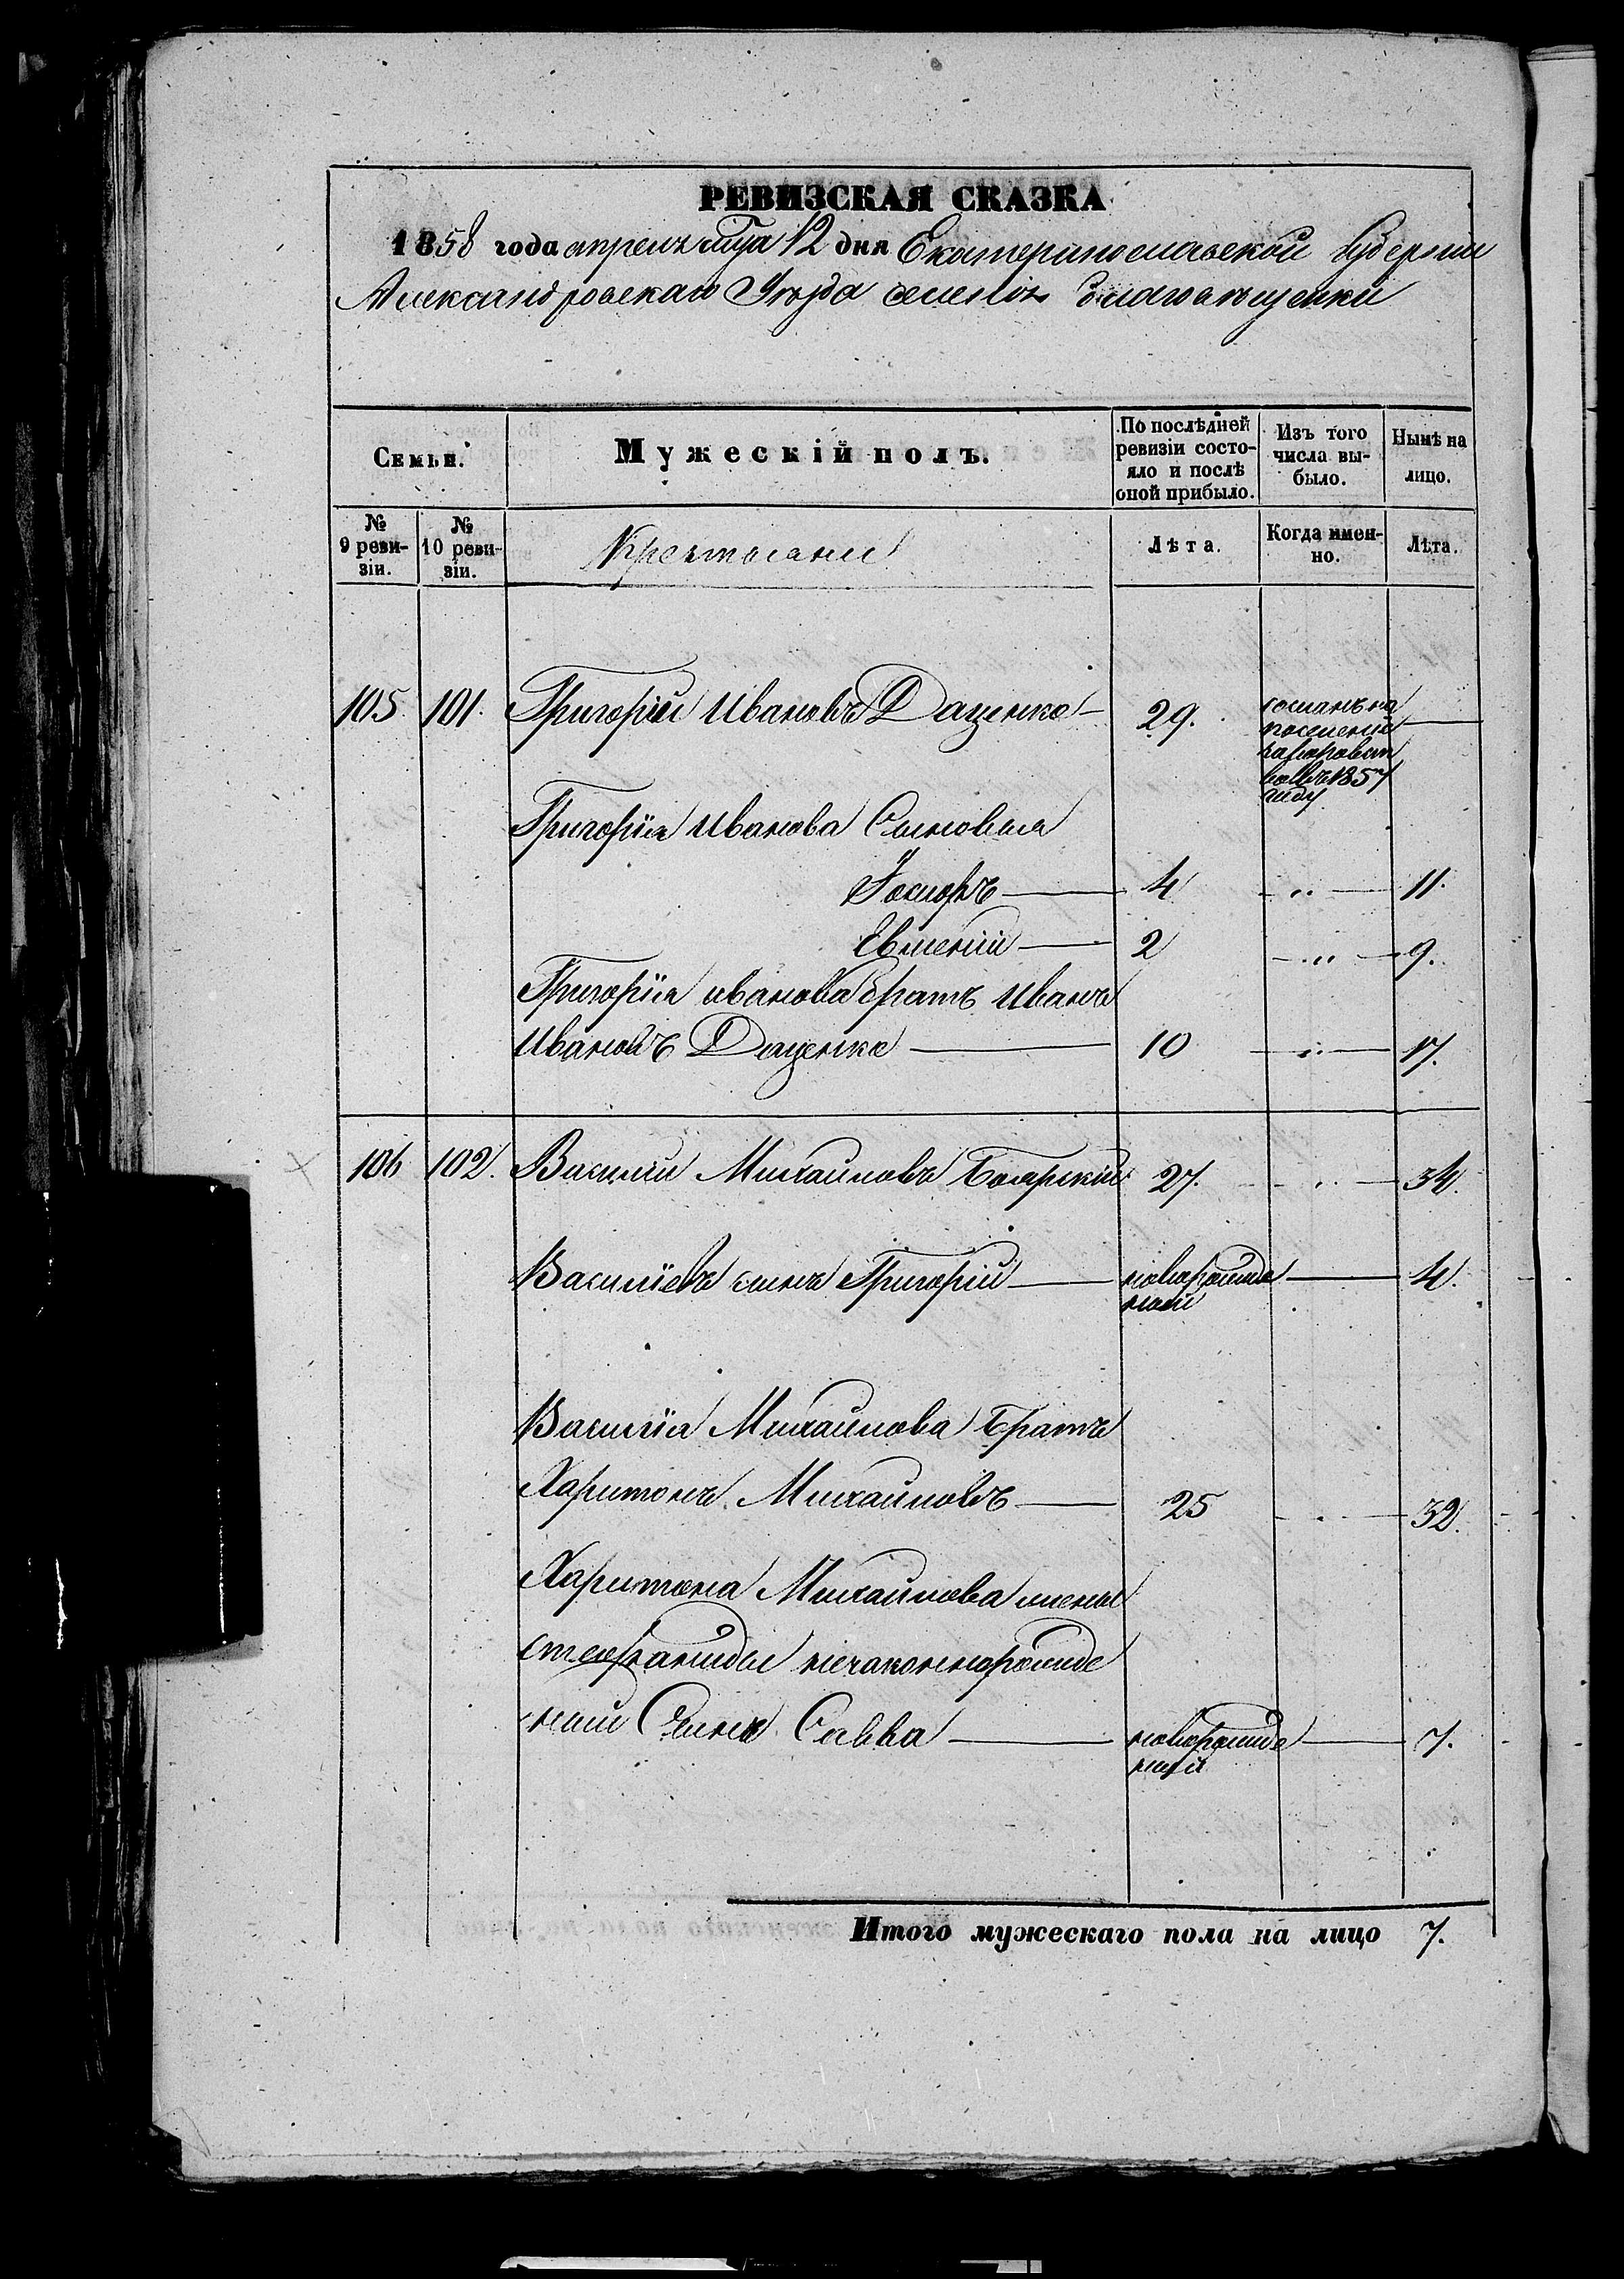 РЕВИЗСКАЯ СКАЗКА
1858 года апреля 12 дня Екатеринославской Губернии
Александровскаго Уезда селения Благовещенки
Семьи.
Мужескій полъ.
По послѣдней ревизіи состояло и послѣ оной прибыло.
Изъ того числа выбыло.
Нынѣ на лицо.
№ 9 ревизіи.
№ 10 ревизіи.
Крестьяне
Лѣта.
Когда именно.
Лѣта.
105. 101. Григорій Ивановъ Даценко — 29. сосланъ на поселеніе 1857 году
Григорія Иванова Сыновья
4 — „ — 11.
Евгеній — 2 — „ — 9.
Григорія иванова братъ Иванъ
Ивановъ Даценко — 10 — „ — 17.
106 102. Василій Михайловъ Боярскій 27. — „ — 34.
Василіевъ сынъ Григорій — новорожденый — 4.
Василія Михайлова Братъ
Харитонъ Михайловъ — 25 — „ — 32.
Харитона Михайлова жены
Стефаниды незаконнорожде
ный Сынъ Савва — новорожденый — 7.
Итого мужескаго пола на лицо 7.